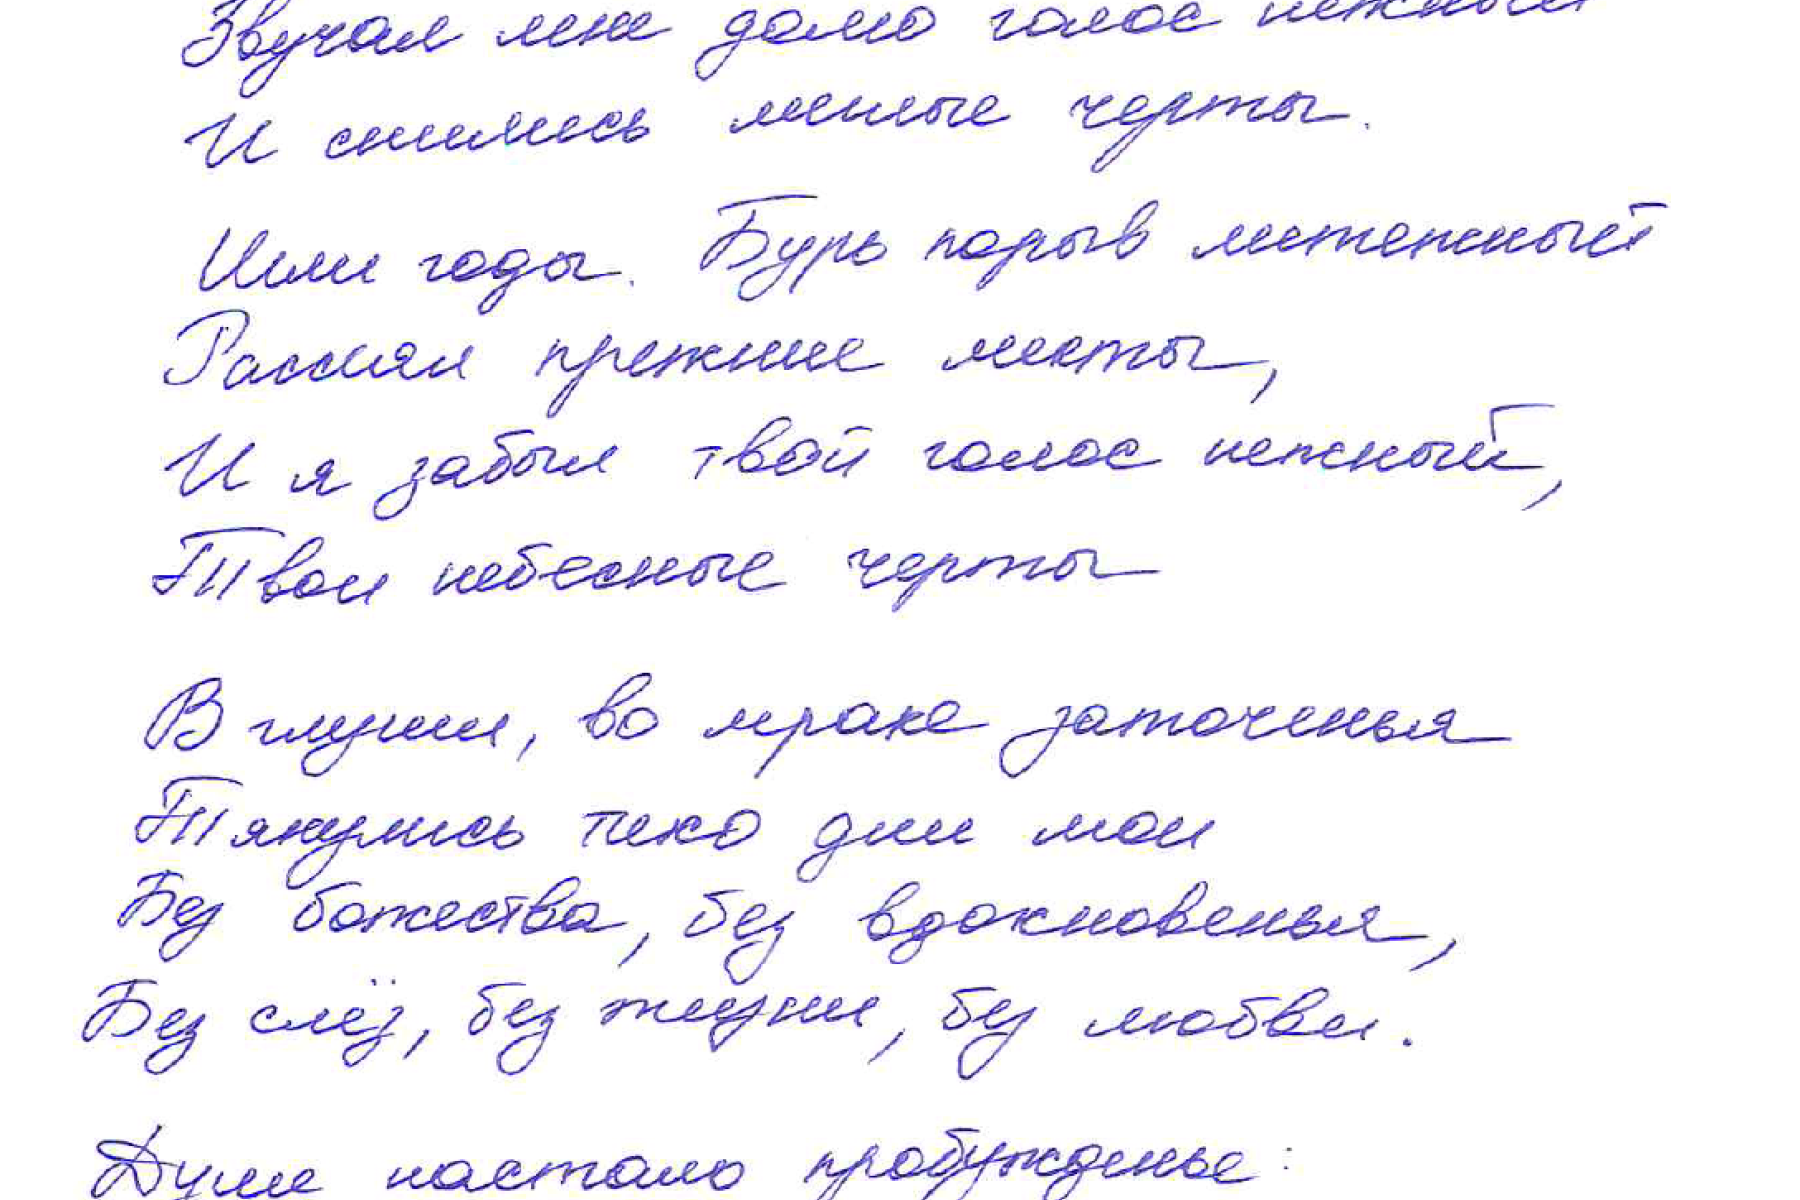 Звучал мне долго голос нежный
И снились милые черты.
Шли годы. Бурь порыв мятежный
Рассеял прежние мечты,
И я забыл твой голос нежный,
Твои небесные черты
В глуши, во мраке заточенья
Тянулись тихо дни мои
Без божества, без вдохновенья,
Без слёз, без жизни, без любви.
Душе настало пробужденье: